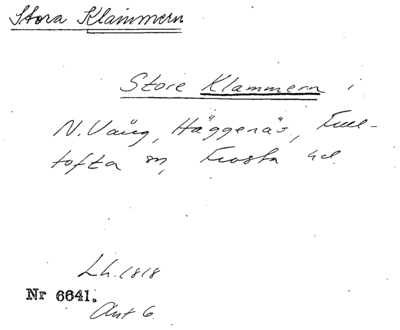 Stora Klammern
Store Klammern i
N. Vång, Häggenäs, Ful-
tofta sn, Frosta hd.
Lh. 1818
Nr 6641.
Akt 6